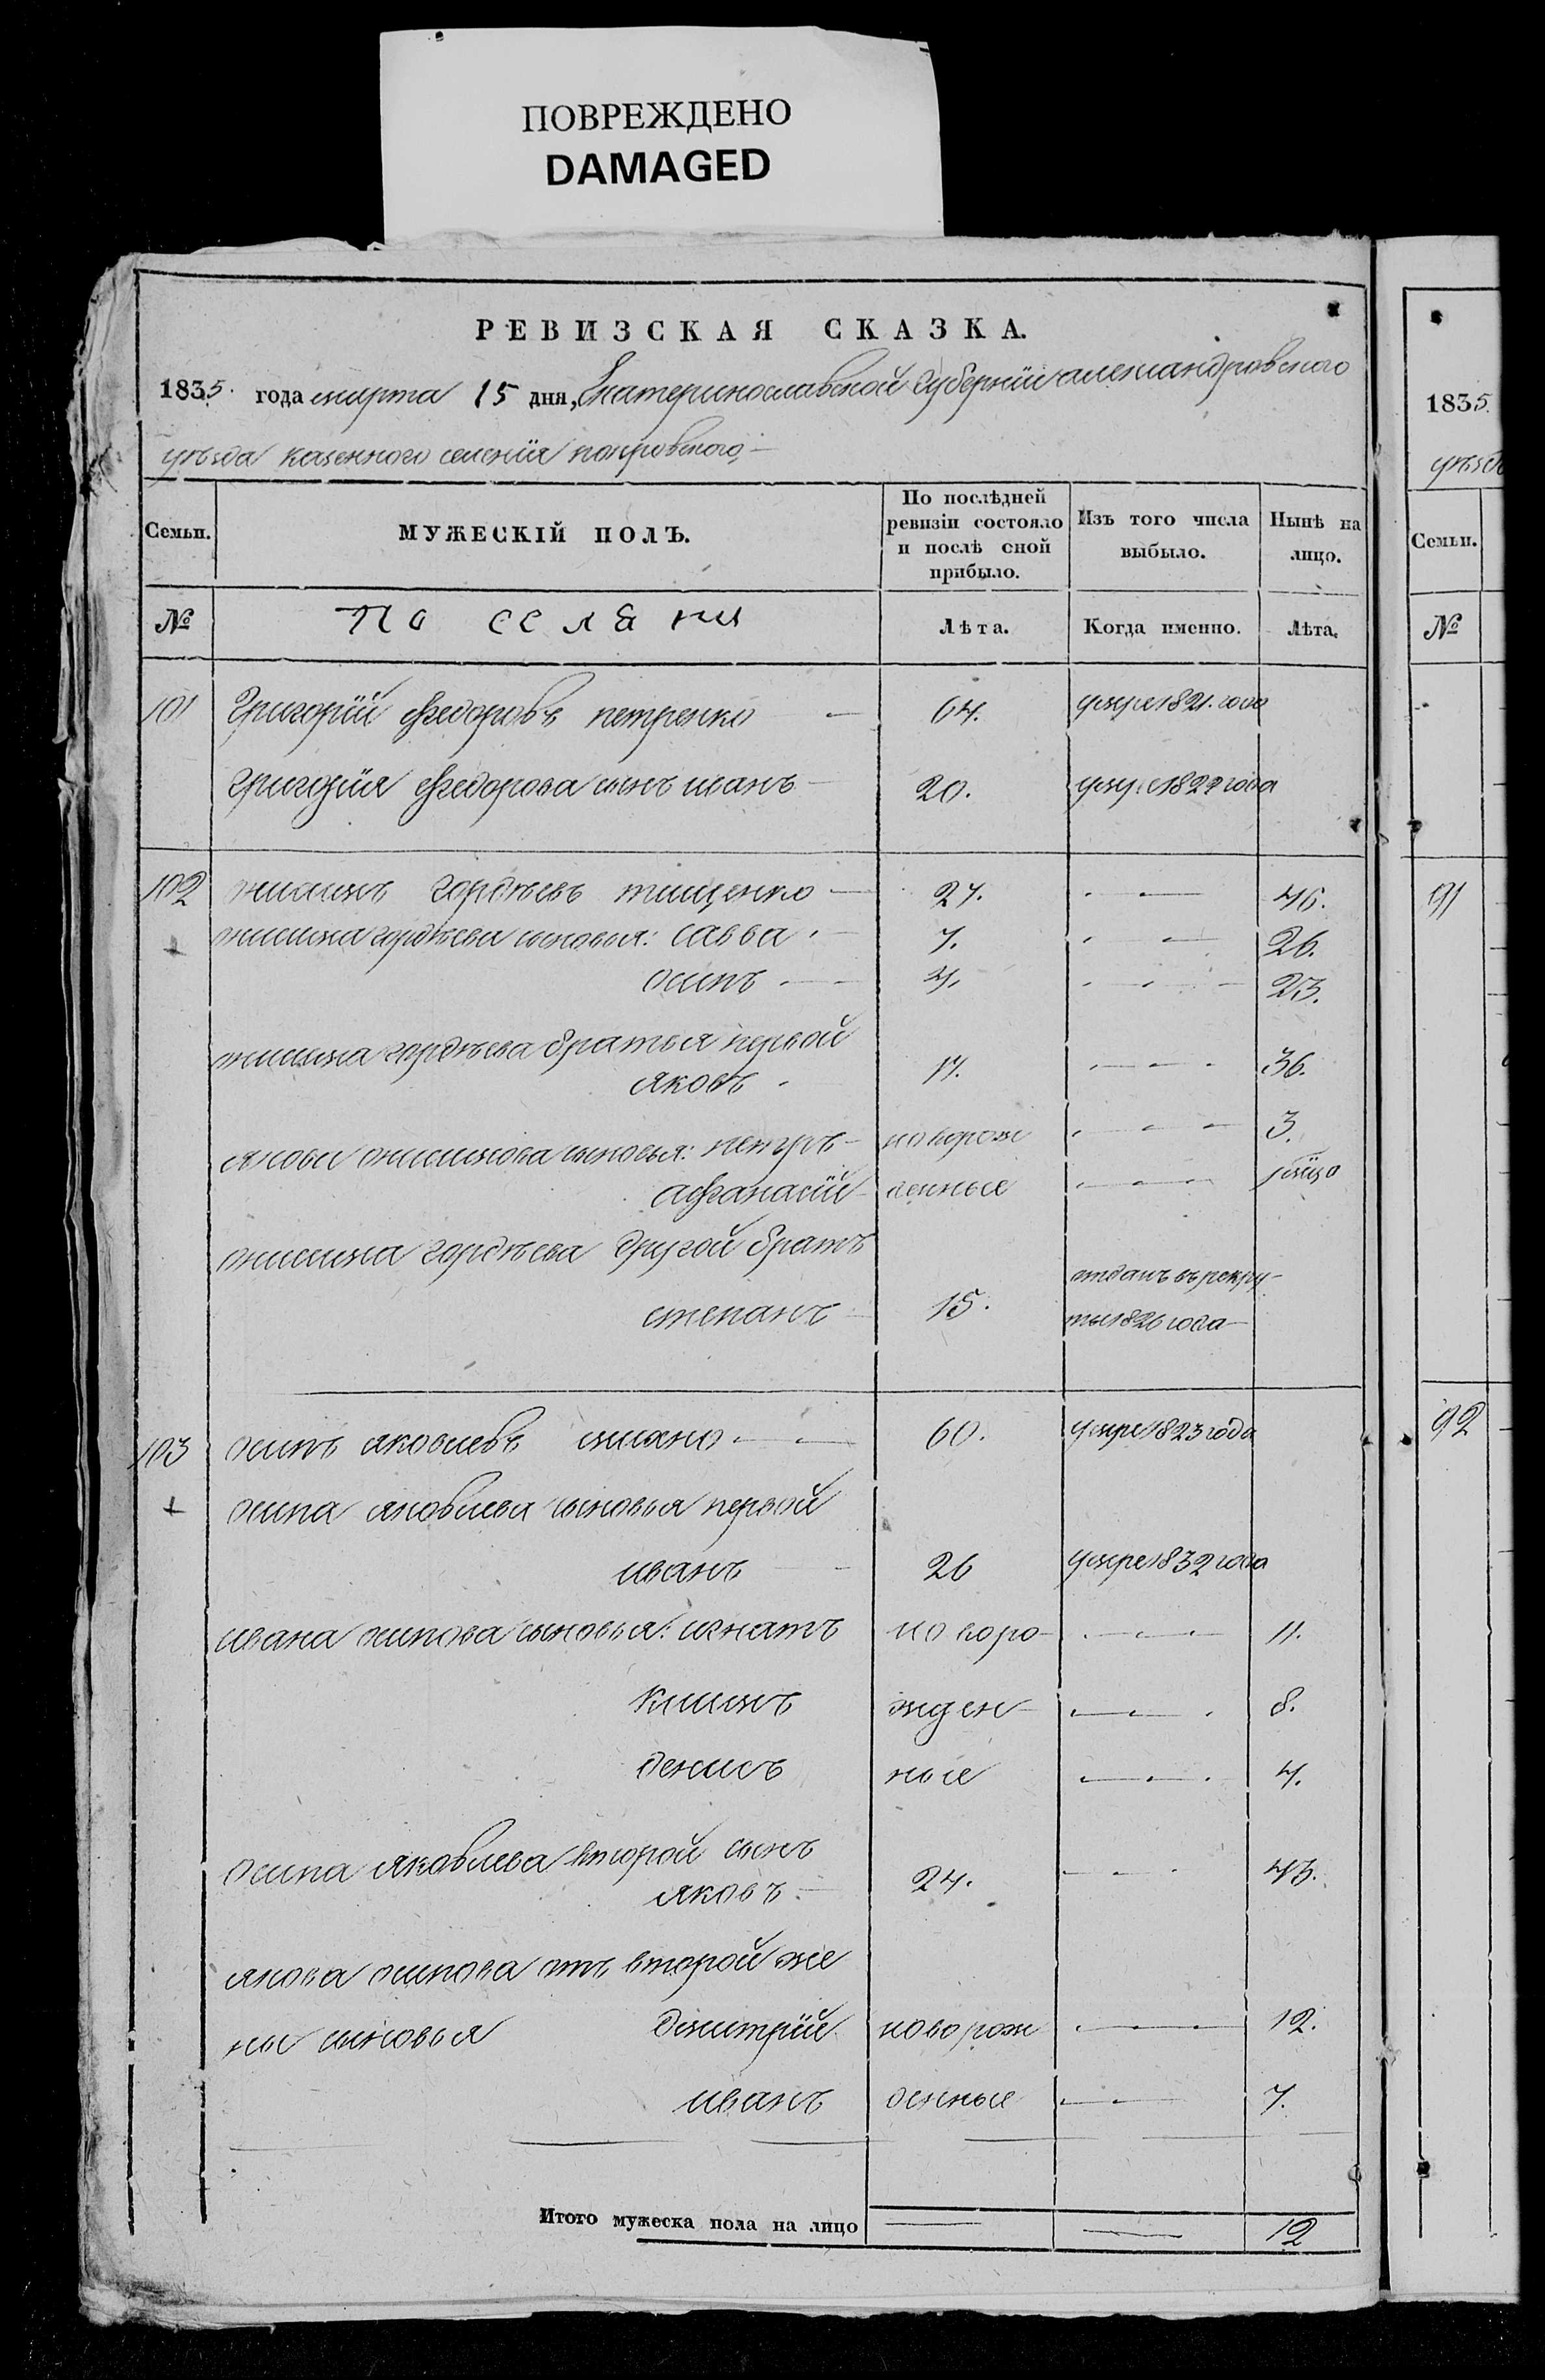 ПОВРЕЖДЕНО
DAMAGED
РЕВИЗСКАЯ СКАЗКА.
1835. года марта 15 дня, Екатеринославской губернiи александровского
уѣзда казенного селенiя покровского
Семьи. МУЖЕСКІЙ ПОЛЪ. По послѣдней ревизіи состояло и послѣ оной прибыло. Изъ того числа выбыло. Нынѣ на лицо.
№ поселяни Лѣта. Когда именно. Лѣта.
101 Григорiй Федоровъ петренко 64. умре 1821. года
Григорiя Федорова сынъ иванъ 20. умре 1822 года
102 онисимъ гордѣевъ тищенко 27. 46.
онисима гордѣева сыновья: савва 7. 26.
осипъ 4. 23.
онисима гордѣева братья первой
яковъ 17. 36.
якова сыновья: петръ новорож 3.
афанасiй денные
онисима гордѣева другой братъ
степанъ 15. отданъ въ рекру-
ты 1826 года
103 осипъ яковлевъ 60. умре 1823 года
осипа яковлева сыновья первой
иванъ 26 умре 1832 года
ивана осипова сыновья: игнатъ новоро 11.
климъ жден 8.
денисъ ные 4.
осипа яковлева второй сынъ
яковъ 24. 43.
якова осипова отъ второй же
ны сыновья дмитрiй новорож 12.
иванъ денные 7.
Итого мужеска пола на лицо 12
1835.
уѣзда
Семьи.
№
91
92